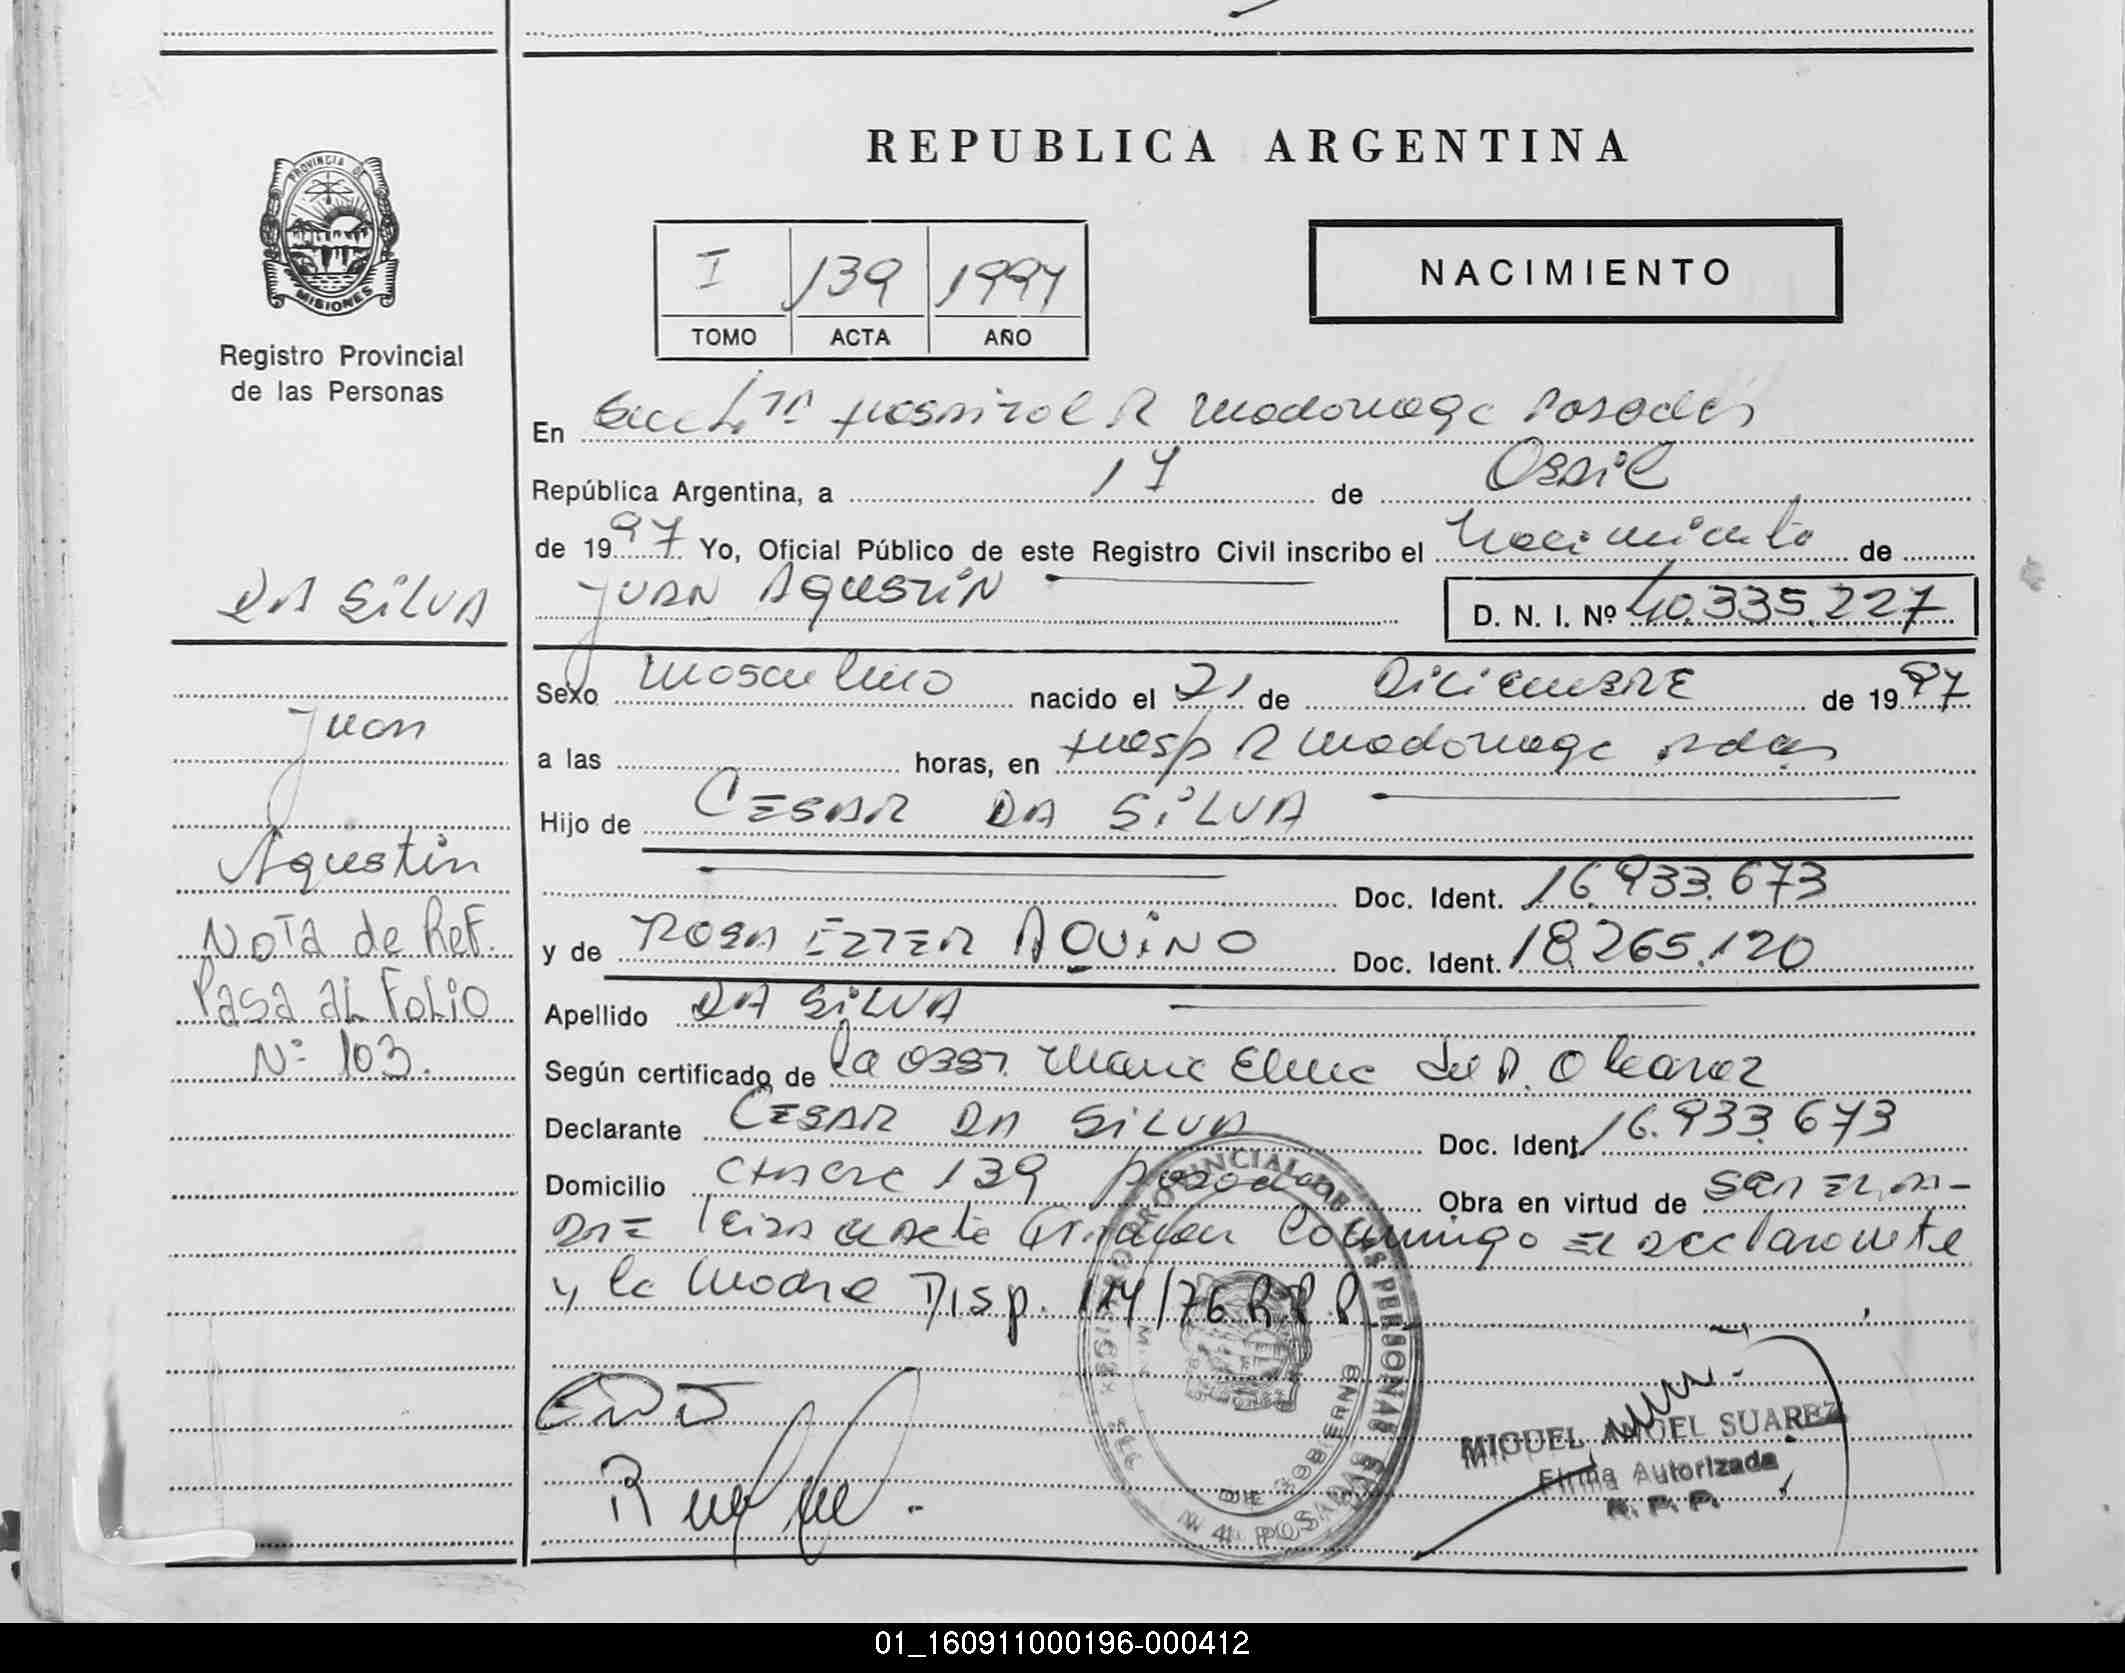 REPUBLICA ARGENTINA
PROVINCIA DE
MISIONES
Registro Provincial
de las Personas
I 139 1997
TOMO ACTA AÑO
NACIMIENTO
En Hospital R Madariaga Posadas
República Argentina, a 17 de
de 1997 Yo, Oficial Público de este Registro Civil inscribo el Nacimiento de
DA SILVA
JUAN AGUSTIN
D. N. I. Nº 40.335.227
Sexo Masculino nacido el 21 de DICIEMBRE de 1997
Juan
a las horas, en Hosp R Madariaga Pdas
Hijo de CESAR DA SILVA
Agustin
Doc. Ident. 16.933.673
Nota de Ref.
y de ROSA ESTER AQUINO Doc. Ident. 18.265.120
Pasa al Folio
Apellido DA SILVA
Nº 103.
Según certificado de la Obst. Maria
Declarante CESAR DA SILVA Doc. Ident. 16.933.673
Domicilio 139 Posadas Obra en virtud de SER EL PA-
DRE Conmigo El declarante
y la Madre Disp. 114/76 R.P.P.
MIGUEL ANGEL SUAREZ
Firma Autorizada
R. P. P.
01_160911000196-000412